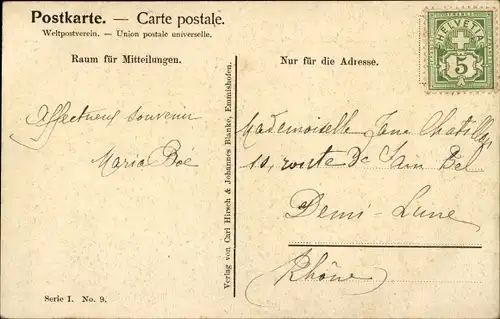 Postkarte. — Carte postale.
Weltpostverein. — Union postale universelle.
Raum für Mitteilungen.
Nur für die Adresse.
HELVETIA
5
Affectueux souvenir
Maria Boé
Verlag von Carl Hirsch & Johannes Blanke, Emmishofen.
Mademoiselle Jane
10, route de Sain Bel
Demi-Lune
Rhône
Serie I. No. 9.